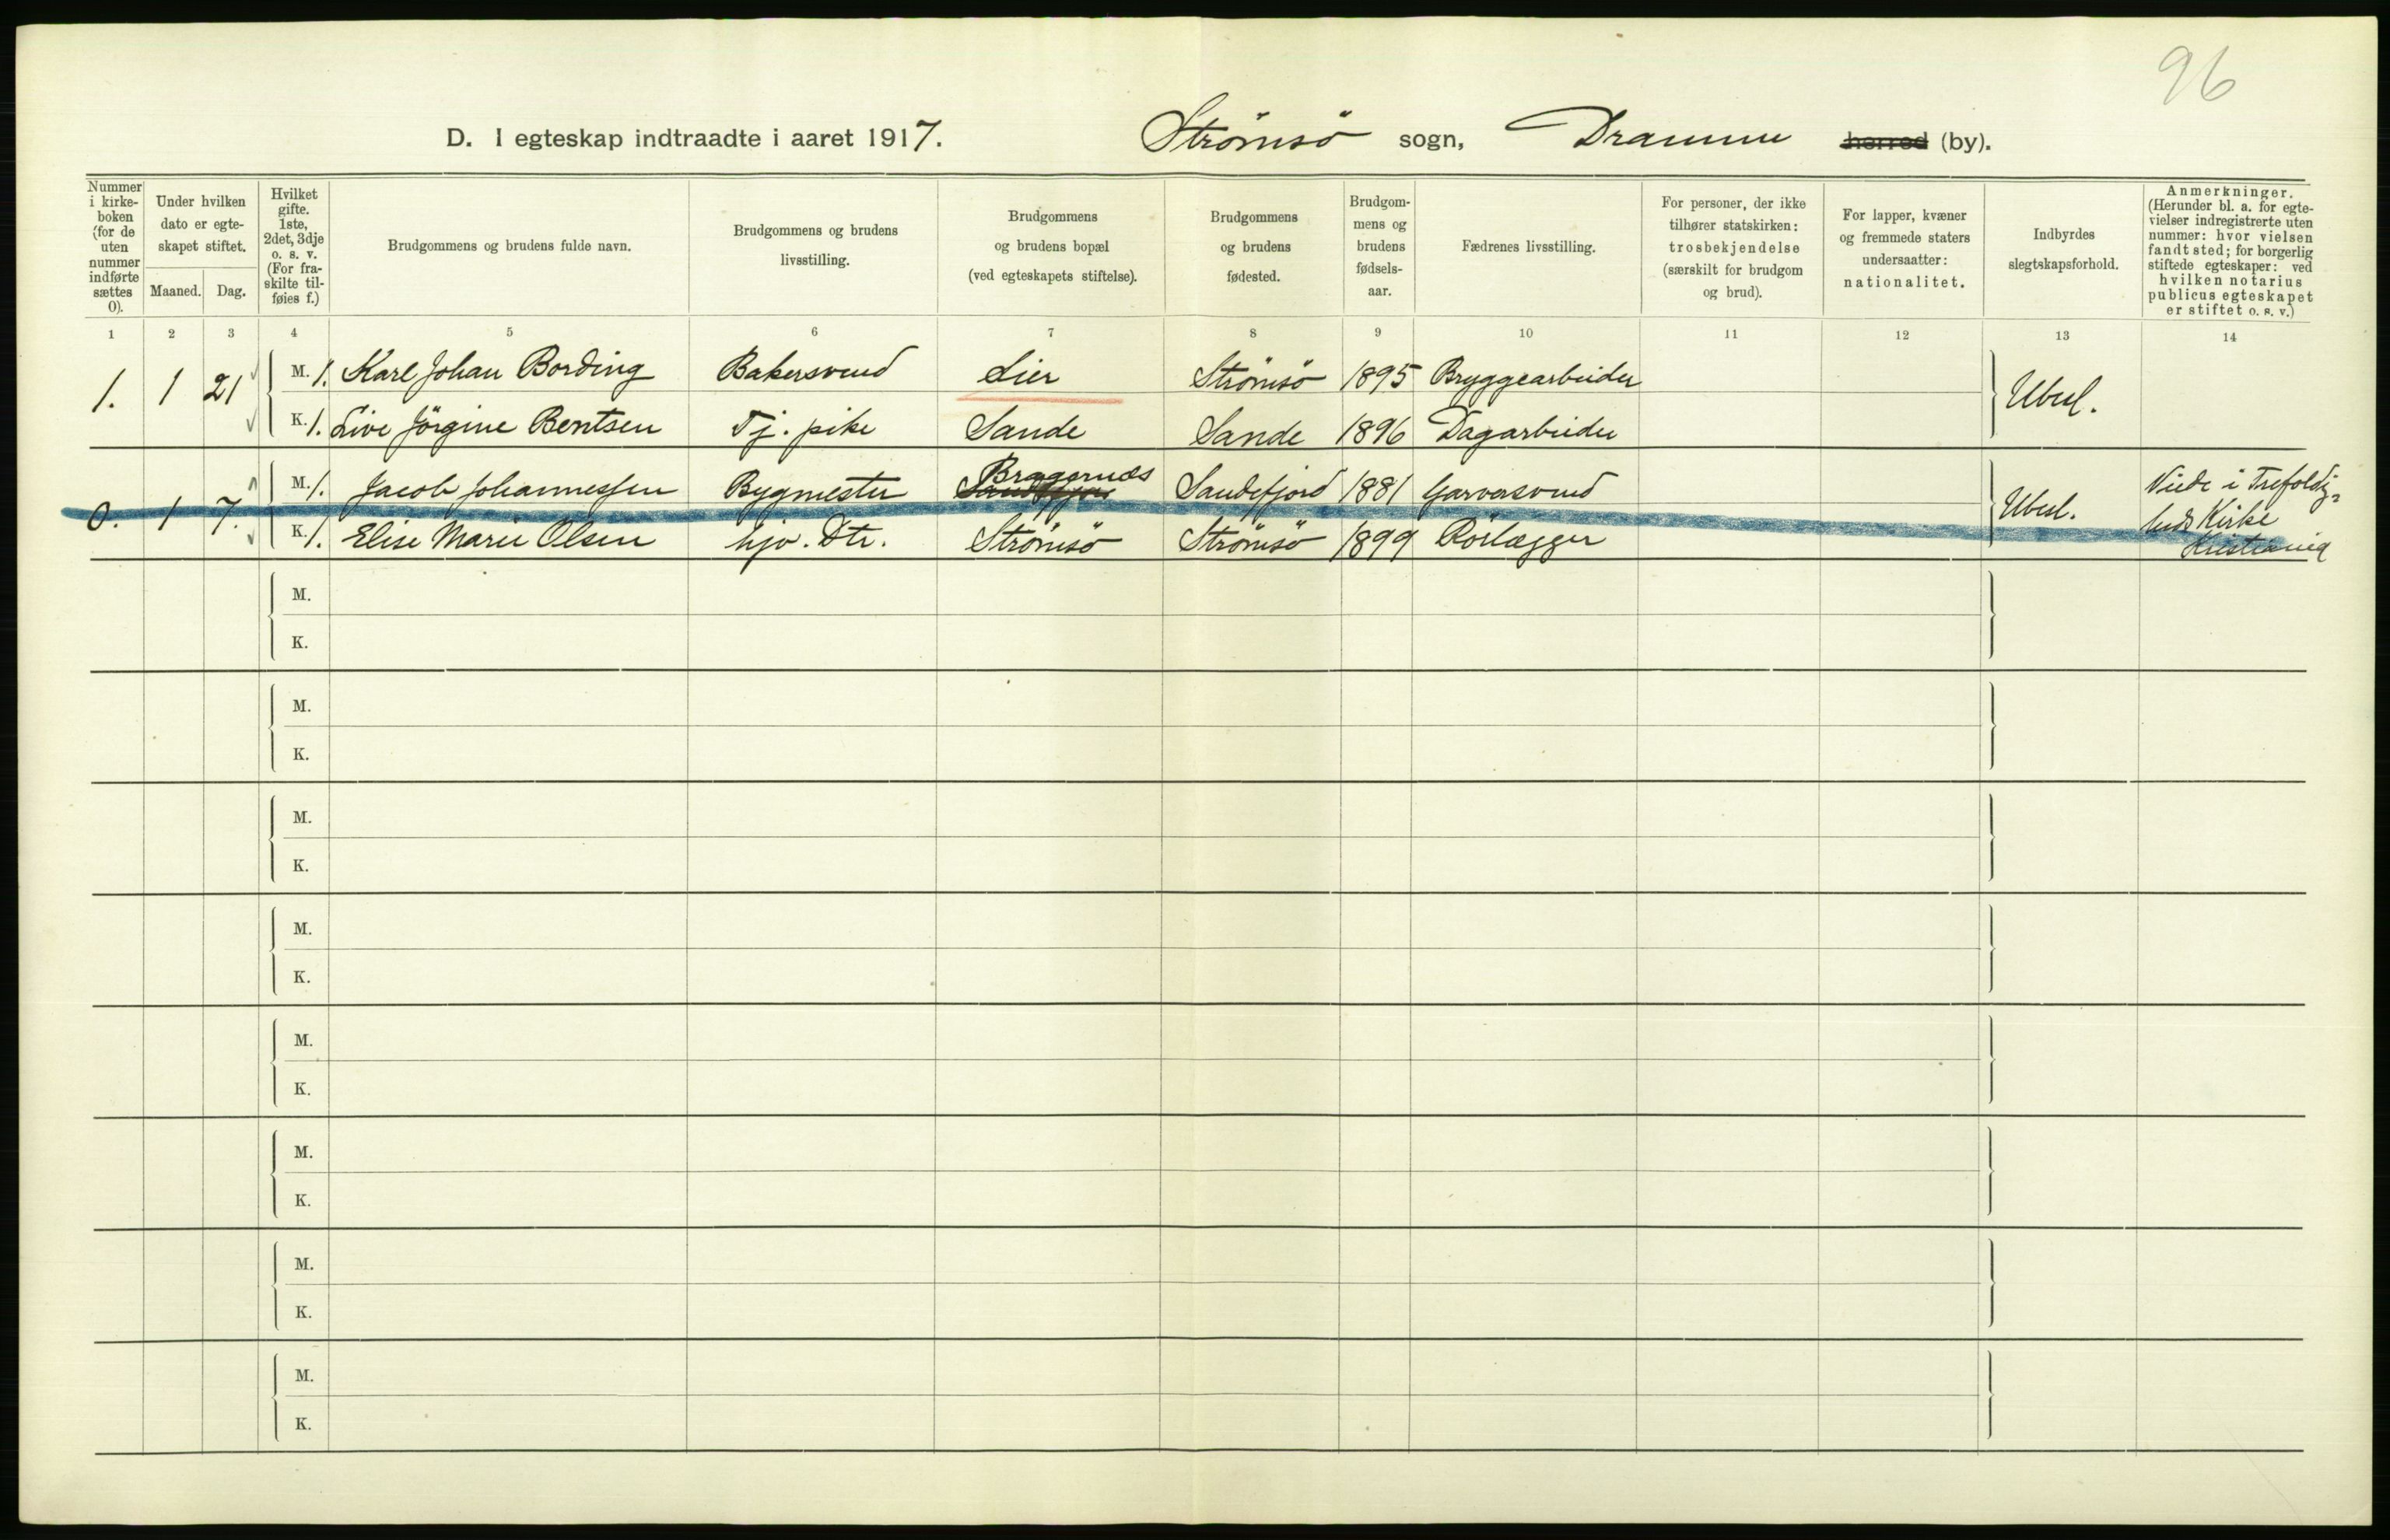 96
D. I egteskap indtraadte i aaret 1917. Strömsö sogn, Drammen herred (by).
Nummer i kirke-boken (for de uten nummer indførte sættes 0).
Under hvilken dato er egte-skapet stiftet.
Maaned. Dag.
Hvilket gifte. 1ste, 2det, 3dje o. s. v. (For fra-skilte til-føies f.)
Brudgommens og brudens fulde navn.
Brudgommens og brudens livsstilling.
Brudgommens og brudens bopæl (ved egteskapets stiftelse).
Brudgommens og brudens fødested.
Brudgom-mens og brudens fødsels-aar.
Fædrenes livsstilling.
For personer, der ikke tilhører statskirken: trosbekjendelse (særskilt for brudgom og brud).
For lapper, kvæner og fremmede staters undersaatter: nationalitet.
Indbyrdes slegtskapsforhold.
Anmerkninger. (Herunder bl. a. for egte-vielser indregistrerte uten nummer: hvor vielsen fandt sted; for borgerlig stiftede egteskaper: ved hvilken notarius publicus egteskapet er stiftet o. s. v.)
1 2 3 4 5 6 7 8 9 10 11 12 13 14
1. 1 21 M. 1. Karl Johan Bording Bakersvend Lier Strömsö 1895 Bryggearbeider Ubesl.
K. 1. Live Jörgine Bentsen Tj. pike Sande Sande 1896 Dagarbeider
0. 1 7. M. 1. Jacob Johannessen Bygmester Sandefjord Bragernæs Sandefjord 1881 Garversvend Ubesl. Viede i Trefoldig-
K. 1. Elise Marie Olsen hjv. Dtr. Strömsö Strömsö 1899 Rörlægger heds Kirke
Kristiania
M.
K.
M.
K.
M.
K.
M.
K.
M.
K.
M.
K.
M.
K.
M.
K.